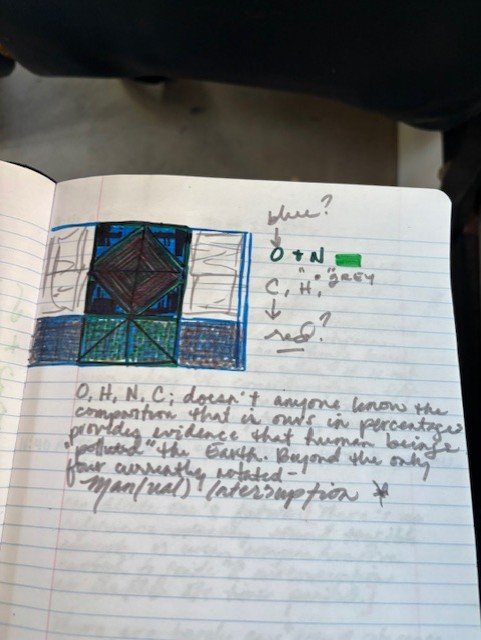 blue?
O + N
C, "H," GREY
red?
O, H, N, C; doesn't anyone know the
composition that is ours in percentage
provides evidence that human beings
"polluted" the Earth. Beyond the only
four currently notated-
Man(ual) Interruption *